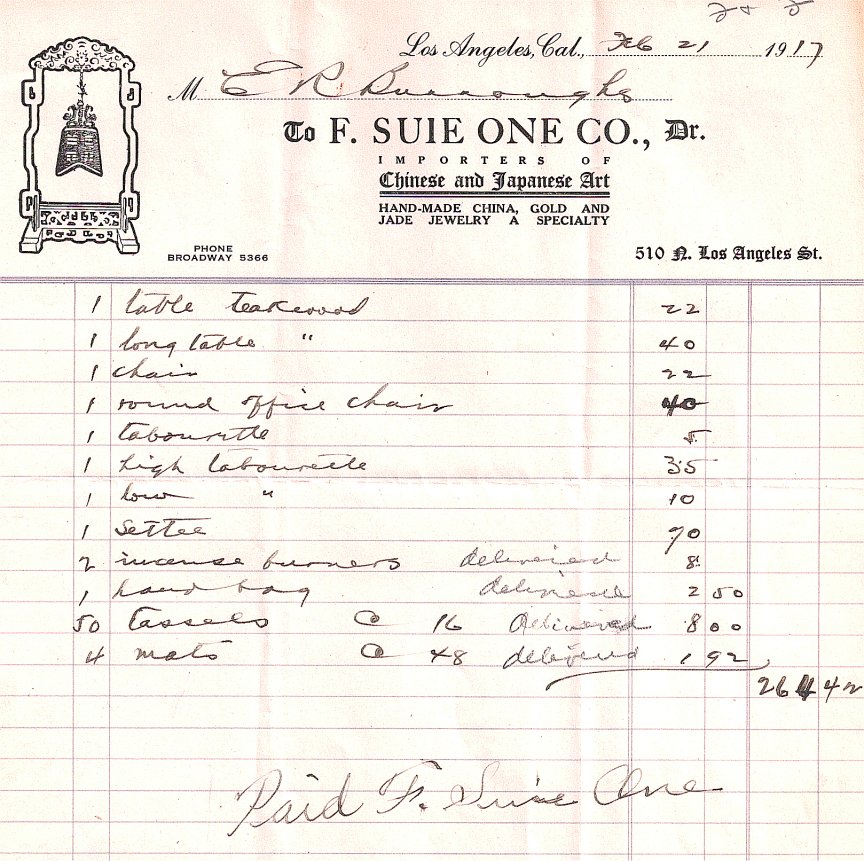 Los Angeles, Cal., Feb 21 1917
M E R Burroughs
To F. SUIE ONE CO., Dr.
IMPORTERS OF
Chinese and Japanese Art
HAND-MADE CHINA, GOLD AND
JADE JEWELRY A SPECIALTY
PHONE
BROADWAY 5366
510 N. Los Angeles St.
1 table teakwood 22
1 long table " 40
1 chair 22
1 round office chair 40
1 tabourette 5
1 high tabourette 35
1 low " 10
1 settee 70
2 incense burners delivered 8
1 hand bag delivered 2 50
50 tassels @ 16 delivered 8 00
4 mats @ 48 delivered 1 92
264 42
Paid F. Suie One